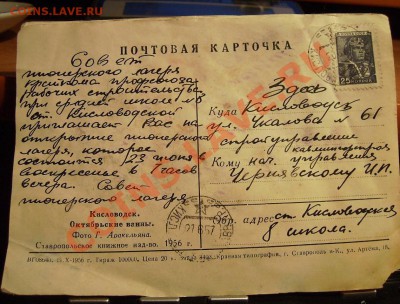 ПОЧТОВАЯ КАРТОЧКА
Совет
пионерского лагеря
крайкома профсоюза
рабочих строительства
при средней школе №8
ст. Кисловодской
приглашает Вас на
открытие пионерского
лагеря, которое
состоится 23 июня в
воскресение в 7 часов
вечера. Совет
пионерского лагеря
Кисловодск.
Октябрьские ванны.
Фото Г. Аракельяна.
Ставропольское книжное изд-во. 1956 г.
25
Здесь
Куда Кисловодск
ул. Чкалова № 61
стройуправление
Кому нач. управления
Чернявскому И.П.
Обр. адрес: ст. Кисловодская
8 школа.
COINS.LAVE.RU
COINS.LAVE.RU